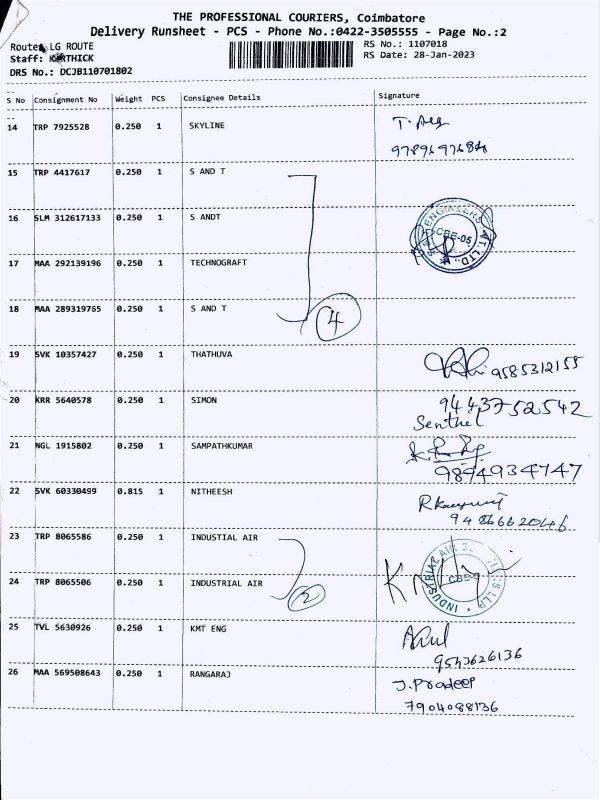 THE PROFESSIONAL COURIERS, Coimbatore
Delivery Runsheet - PCS - Phone No.:0422-3505555 - Page No.:2
Route: LG ROUTE
RS No.: 1107018
Staff: KARTHICK
RS Date: 28-Jan-2023
DRS No.: DCJB110701802
S No Consignment No Weight PCS Consignee Details Signature
14 TRP 7925528 0.250 1 SKYLINE
15 TRP 4417617 0.250 1 S AND T
16 SLM 312617133 0.250 1 S ANDT
ENGINEERS
CBE-05
17 MAA 292139196 0.250 1 TECHNOGRAFT
18 MAA 289319765 0.250 1 S AND T
4
19 SVK 10357427 0.250 1 THATHUVA
9585312155
20 KRR 5640578 0.250 1 SIMON
9443752542
Senthil
21 NGL 1915802 0.250 1 SAMPATHKUMAR
9894934747
22 SVK 60330499 0.815 1 NITHEESH
9486662046
23 TRP 8065586 0.250 1 INDUSTIAL AIR
24 TRP 8065506 0.250 1 INDUSTRIAL AIR
2
INDUSTRIAL AIR
LLP
25 TVL 5630926 0.250 1 KMT ENG
Arul
9543626136
26 MAA 569508643 0.250 1 RANGARAJ
J.Pradeep
7904088136